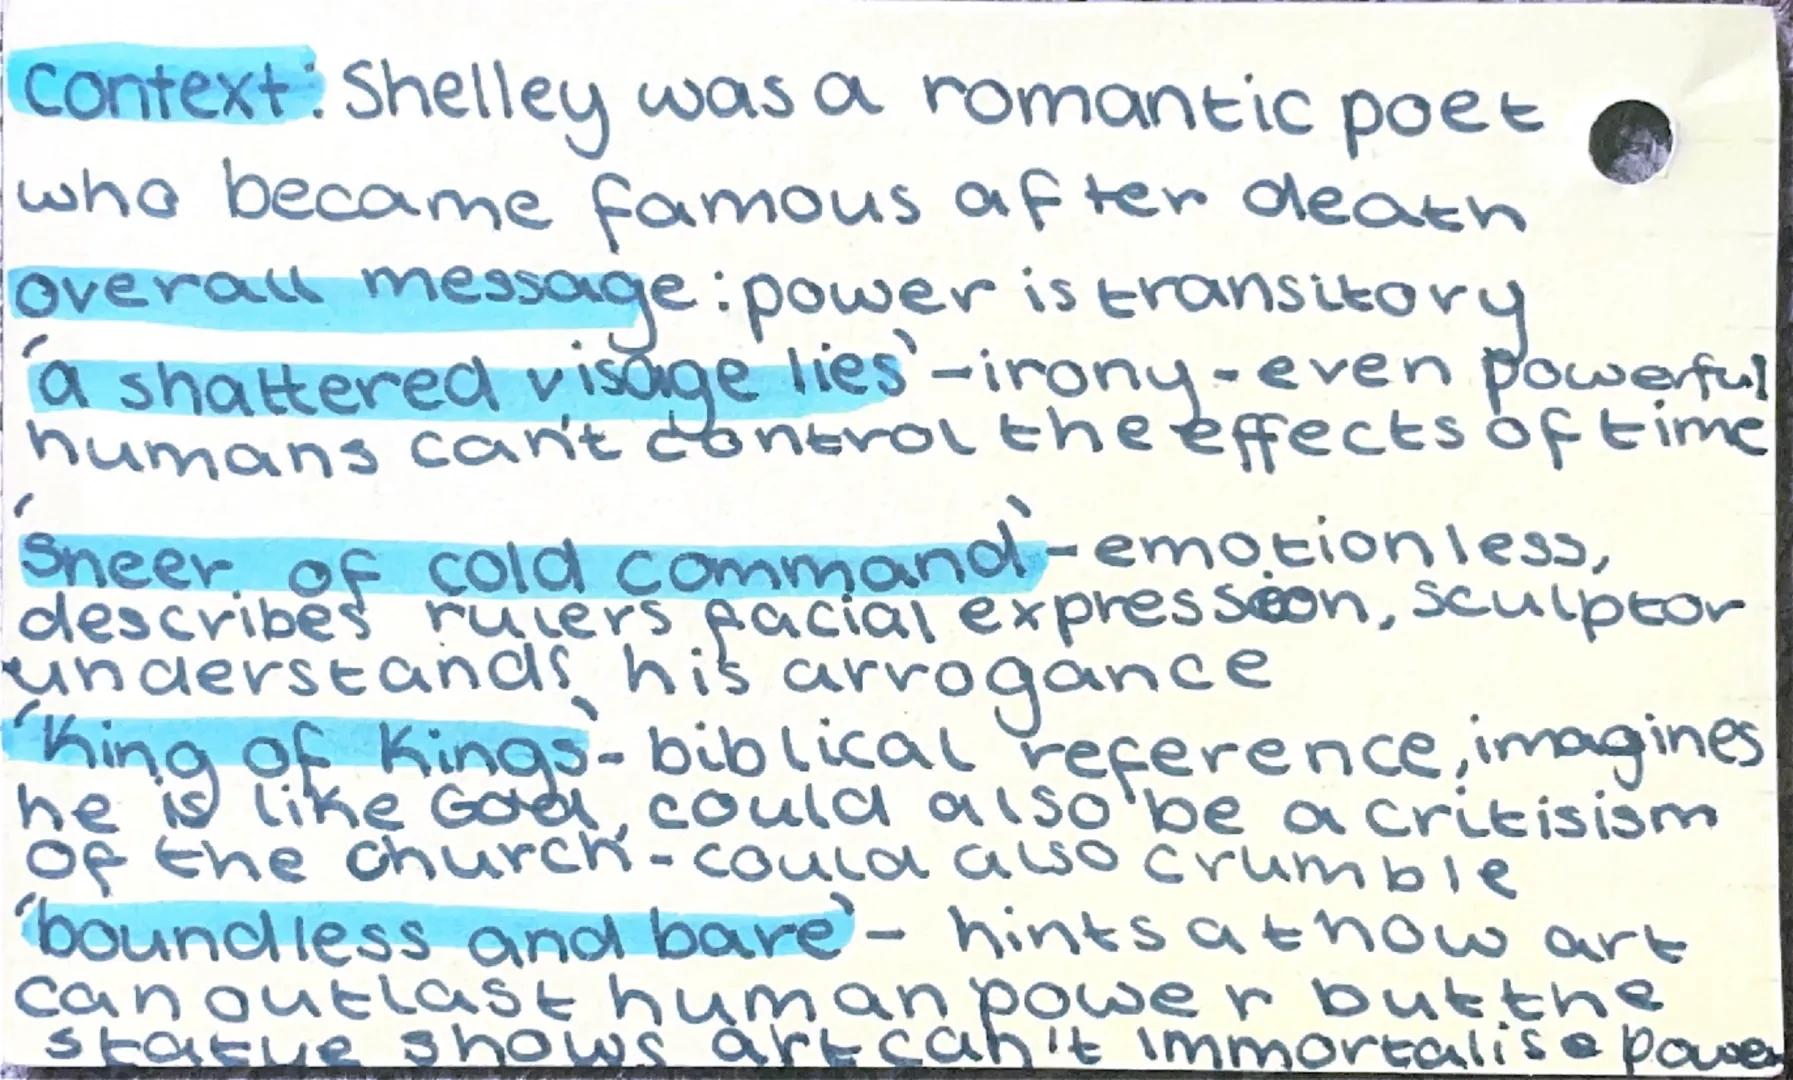 Context: Shelley was a romantic poet
who became famous after death
overall message: power is transitory
'a shattered visage lies' - irony - even powerful
humans can't control the effects of time
'Sneer of cold command' - emotionless,
describes rulers facial expression, sculptor
understands his arrogance
'King of Kings' - biblical reference, imagines
he is like God, could also be a critisism
of the church - could also crumble
'boundless and bare' - hints at how art
can outlast human power but the
statue shows art can't immortalise power